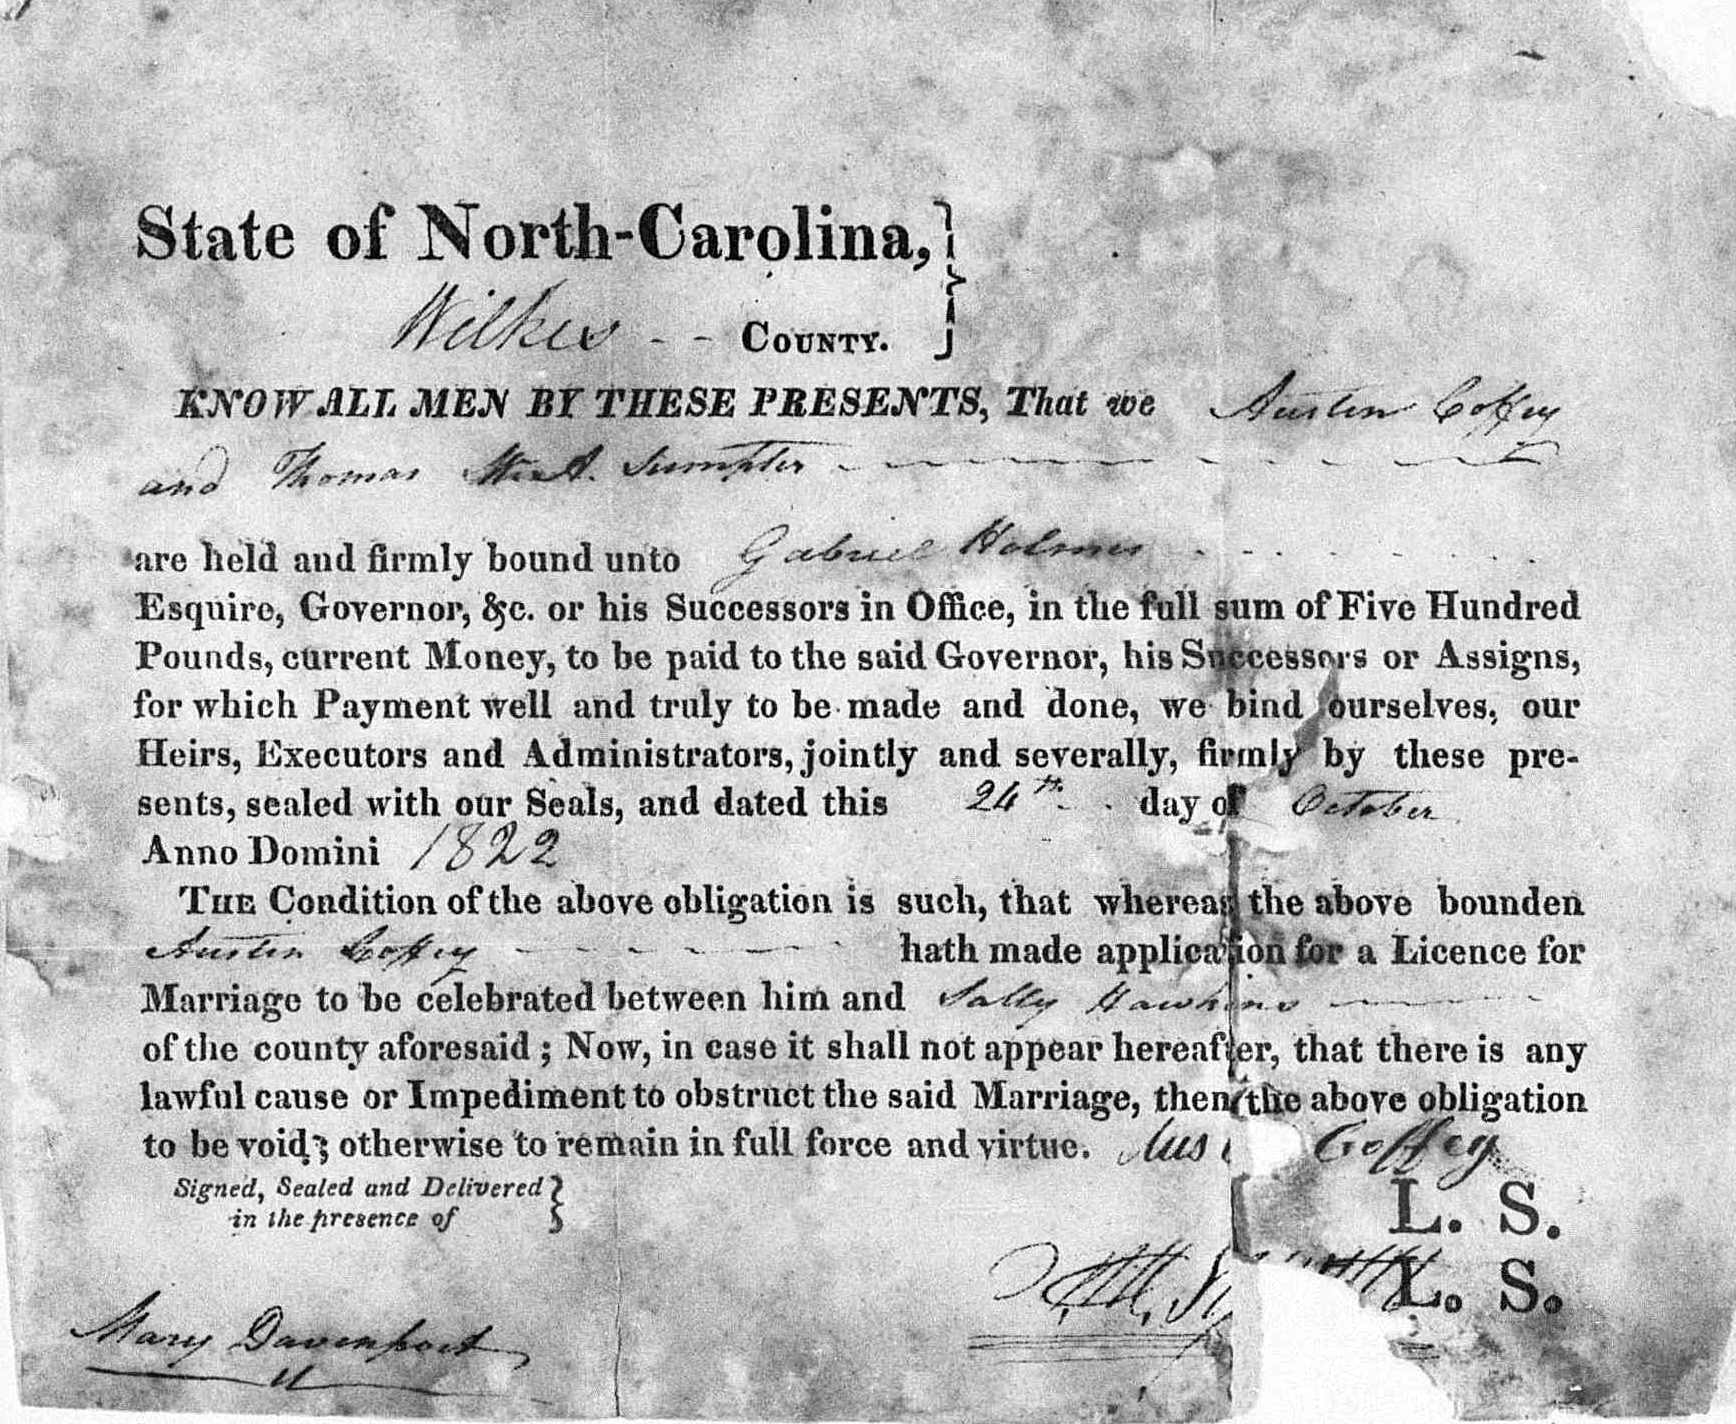 State of North-Carolina,
Wilkes COUNTY.
KNOW ALL MEN BY THESE PRESENTS, That we Austin Coffey
and Thomas Sumpter
are held and firmly bound unto Gabriel Holmes
Esquire, Governor, &c. or his Successors in Office, in the full sum of Five Hundred
Pounds, current Money, to be paid to the said Governor, his Successors or Assigns,
for which Payment well and truly to be made and done, we bind ourselves, our
Heirs, Executors and Administrators, jointly and severally, firmly by these pre-
sents, sealed with our Seals, and dated this 24th day of October
Anno Domini 1822
THE Condition of the above obligation is such, that whereas the above bounden
Austin Coffey hath made application for a Licence for
Marriage to be celebrated between him and Sally Hawkins
of the county aforesaid; Now, in case it shall not appear hereafter, that there is any
lawful cause or Impediment to obstruct the said Marriage, then the above obligation
to be void; otherwise to remain in full force and virtue. Aus Coffey
Signed, Sealed and Delivered
in the presence of
L. S.
L. S.
Mary Davenport